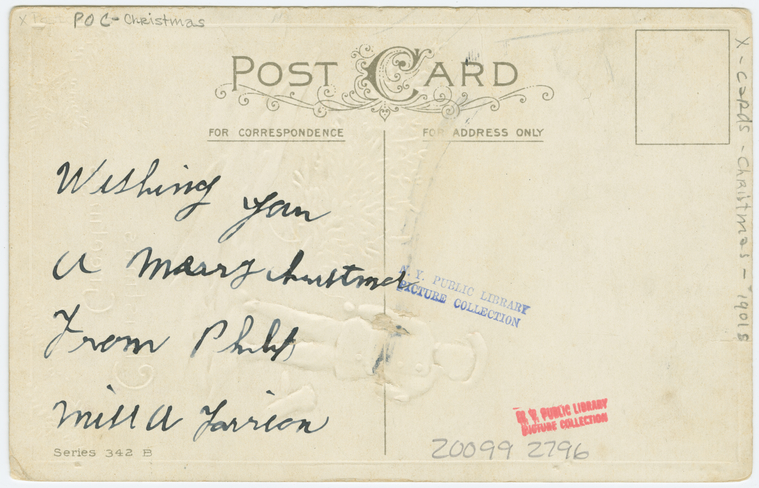 POC-Christmas
POST CARD
FOR CORRESPONDENCE
FOR ADDRESS ONLY
Wishing you
a Marry
From Philip
N. Y. PUBLIC LIBRARY
PICTURE COLLECTION
N. Y. PUBLIC LIBRARY
PICTURE COLLECTION
Series 342 B
20099 2796
X-Cards-Christmas-1910s